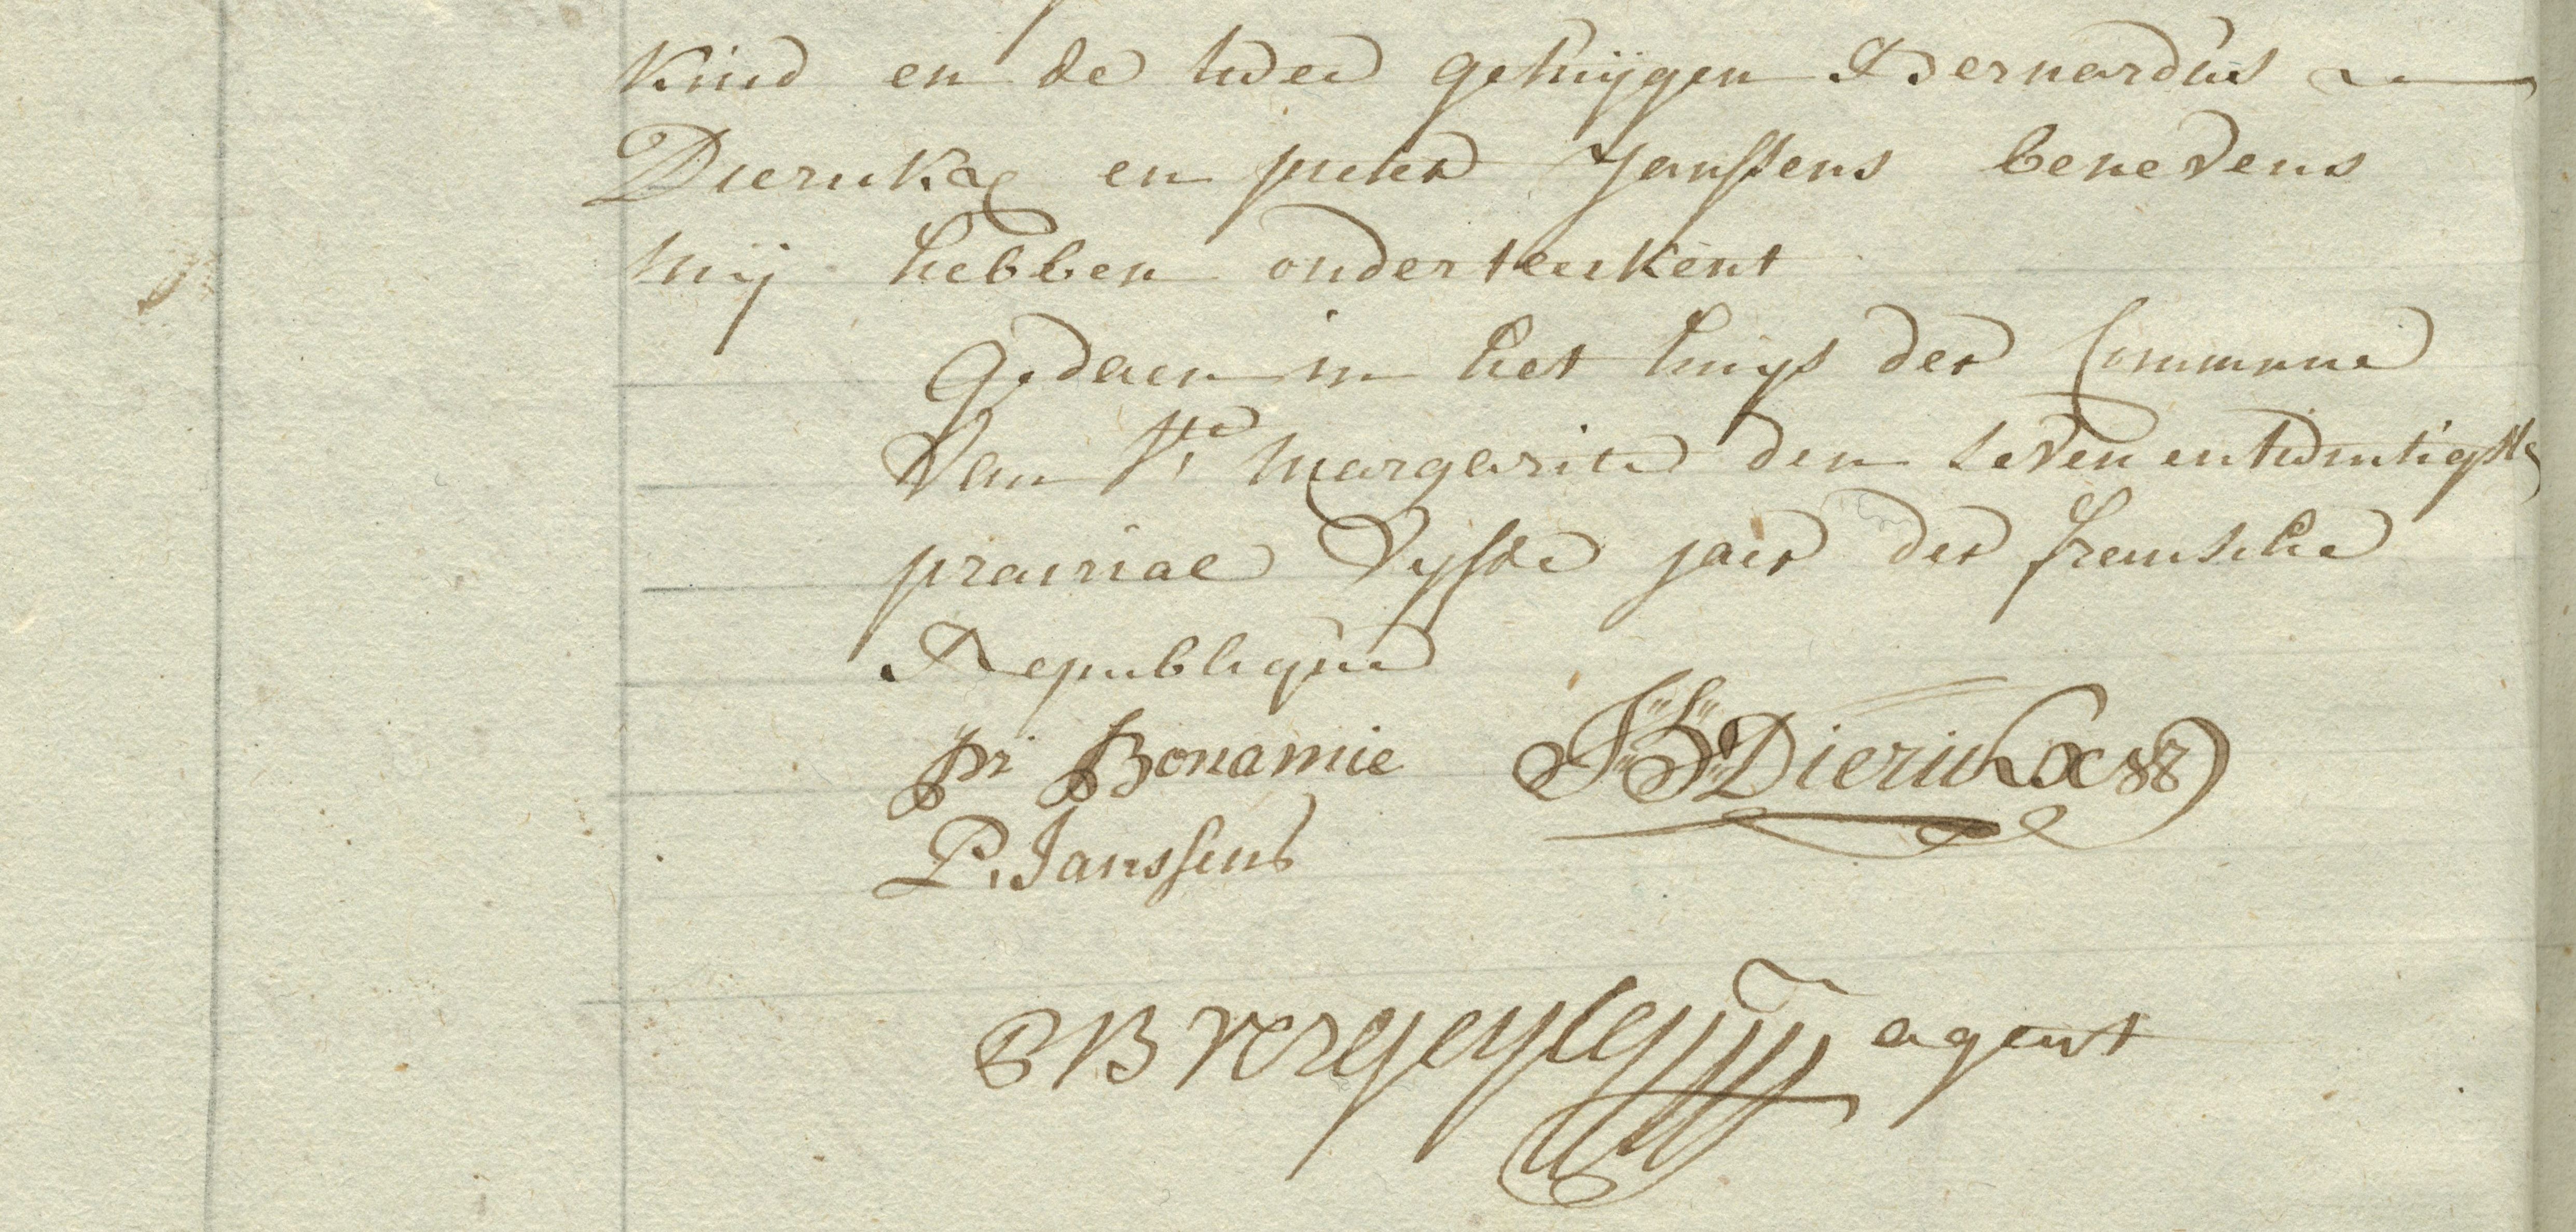 kind en de twee getuijgen Bernardus
Dierickx en pieter Janssens benevens
mij hebben onderteekent
Gedaen in het huijs der Commune
Van Ste margarite den sevenentwintigste
prairial Vyfde jaer der fransche
Republique
Pr Bonamie Dierickx
P. Janssens
PB vergeylen agent